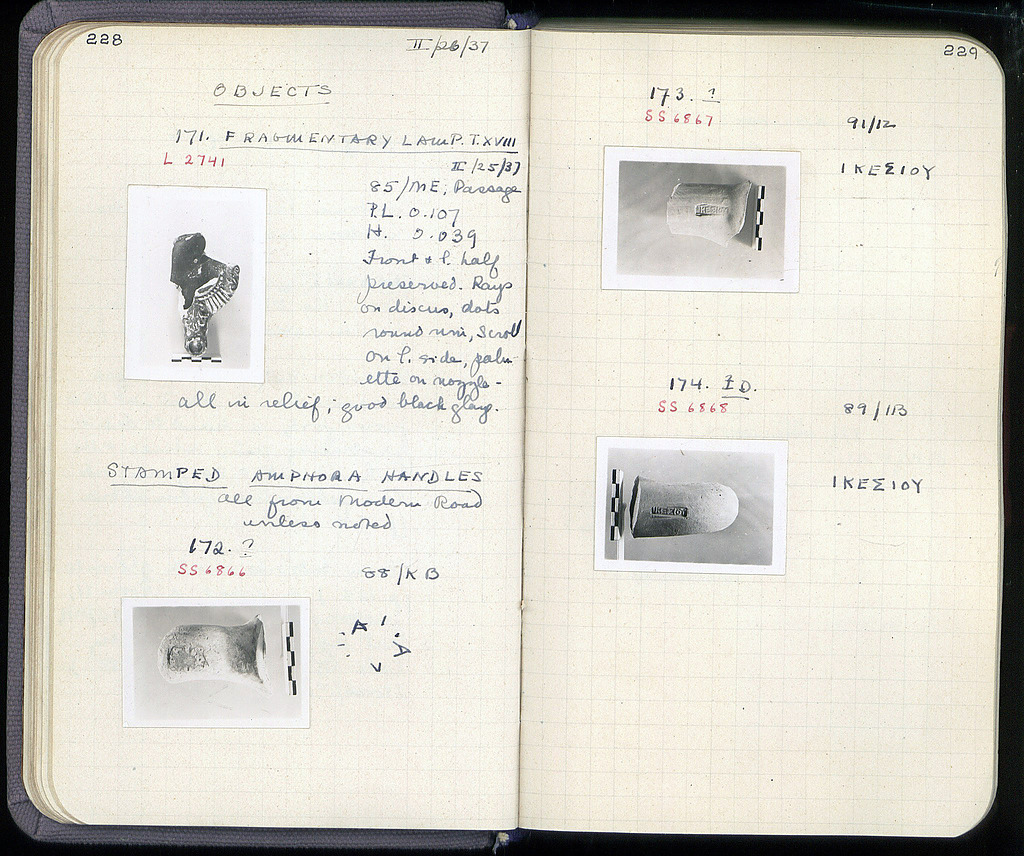 228
II/26/37
OBJECTS
171. FRAGMENTARY LAMP. T. XVIII
L 2741
II/25/37
85/ME; Passage
P.L. 0.107
H. 0.039
Front & l. half
preserved. Rays
on discus, dots
round rim, Scroll
on l. side, palm-
ette on nozzle -
all in relief; good black glaze.
STAMPED AMPHORA HANDLES
all from Modern Road
unless noted
172. ?
SS 6866
88/KB
A
A
229
173. ?
SS 6867
91/12
ΙΚΕΣΙΟΥ
174. ? D.
SS 6868
89/1B
ΙΚΕΣΙΟΥ